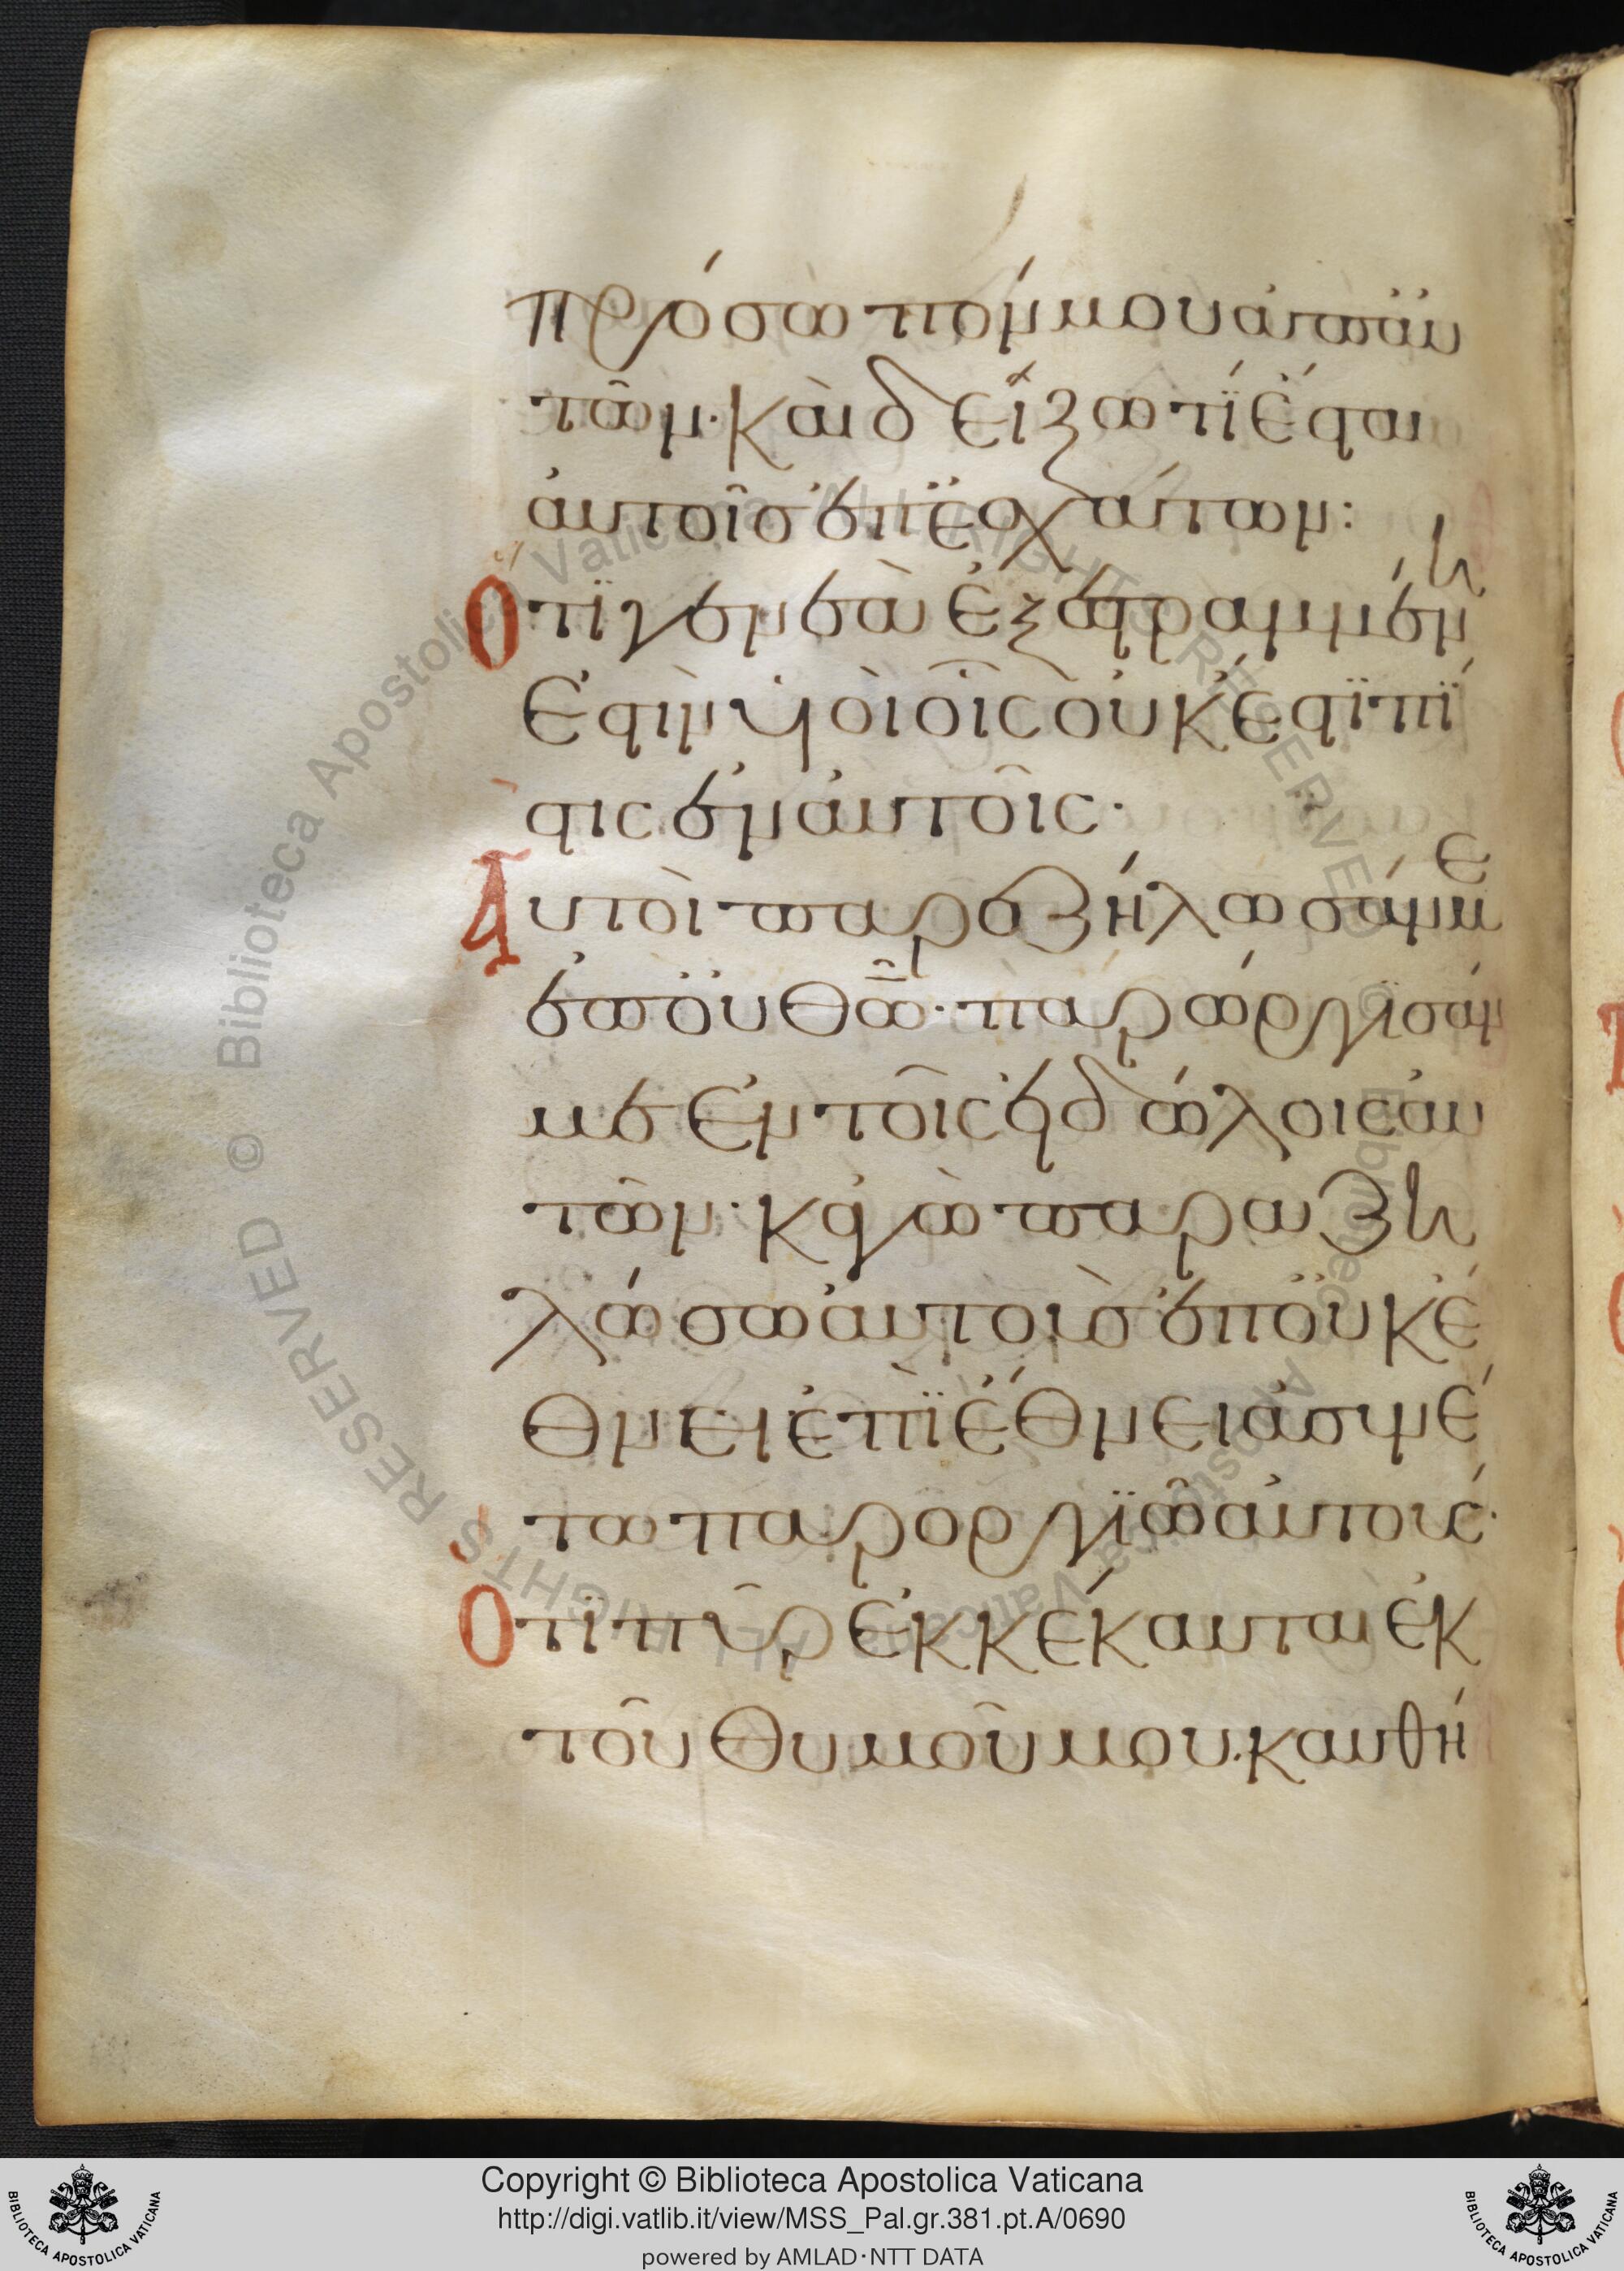 πρόσωπόν μου ἀπ' αὐ
τῶν· καὶ δείξω τί ἔσται
αὐτοῖς ἐπ' ἐσχάτων:
Ὅτι γενεὰ ἐξεστραμμένη
ἐστὶν υἱοὶ οἷς οὐκ ἔστι πί
στις ἐν αὐτοῖς·
Αὐτοὶ παρεζήλωσάν με
ἐπ' οὐ θῶ· παρώργισάν
με ἐν τοῖς εἰδώλοις αὐ
τῶν· κἀγὼ παραζη
λώσω αὐτοὺς ἐπ' οὐκ ἔ
θνει ἐπὶ ἔθνει ἀσυνέ
τω παροργιῶ αὐτούς·
Ὅτι πῦρ ἐκκέκαυται ἐκ
τοῦ θυμοῦ μου· καυθή
Copyright © Biblioteca Apostolica Vaticana
http://digi.vatlib.it/view/MSS_Pal.gr.381.pt.A/0690
powered by AMLAD·NTT DATA
BIBLIOTECA APOSTOLICA VATICANA
BIBLIOTECA APOSTOLICA VATICANA
© Biblioteca Apostolica Vaticana ALL RIGHTS RESERVED
© Biblioteca Apostolica Vaticana ALL RIGHTS RESERVED